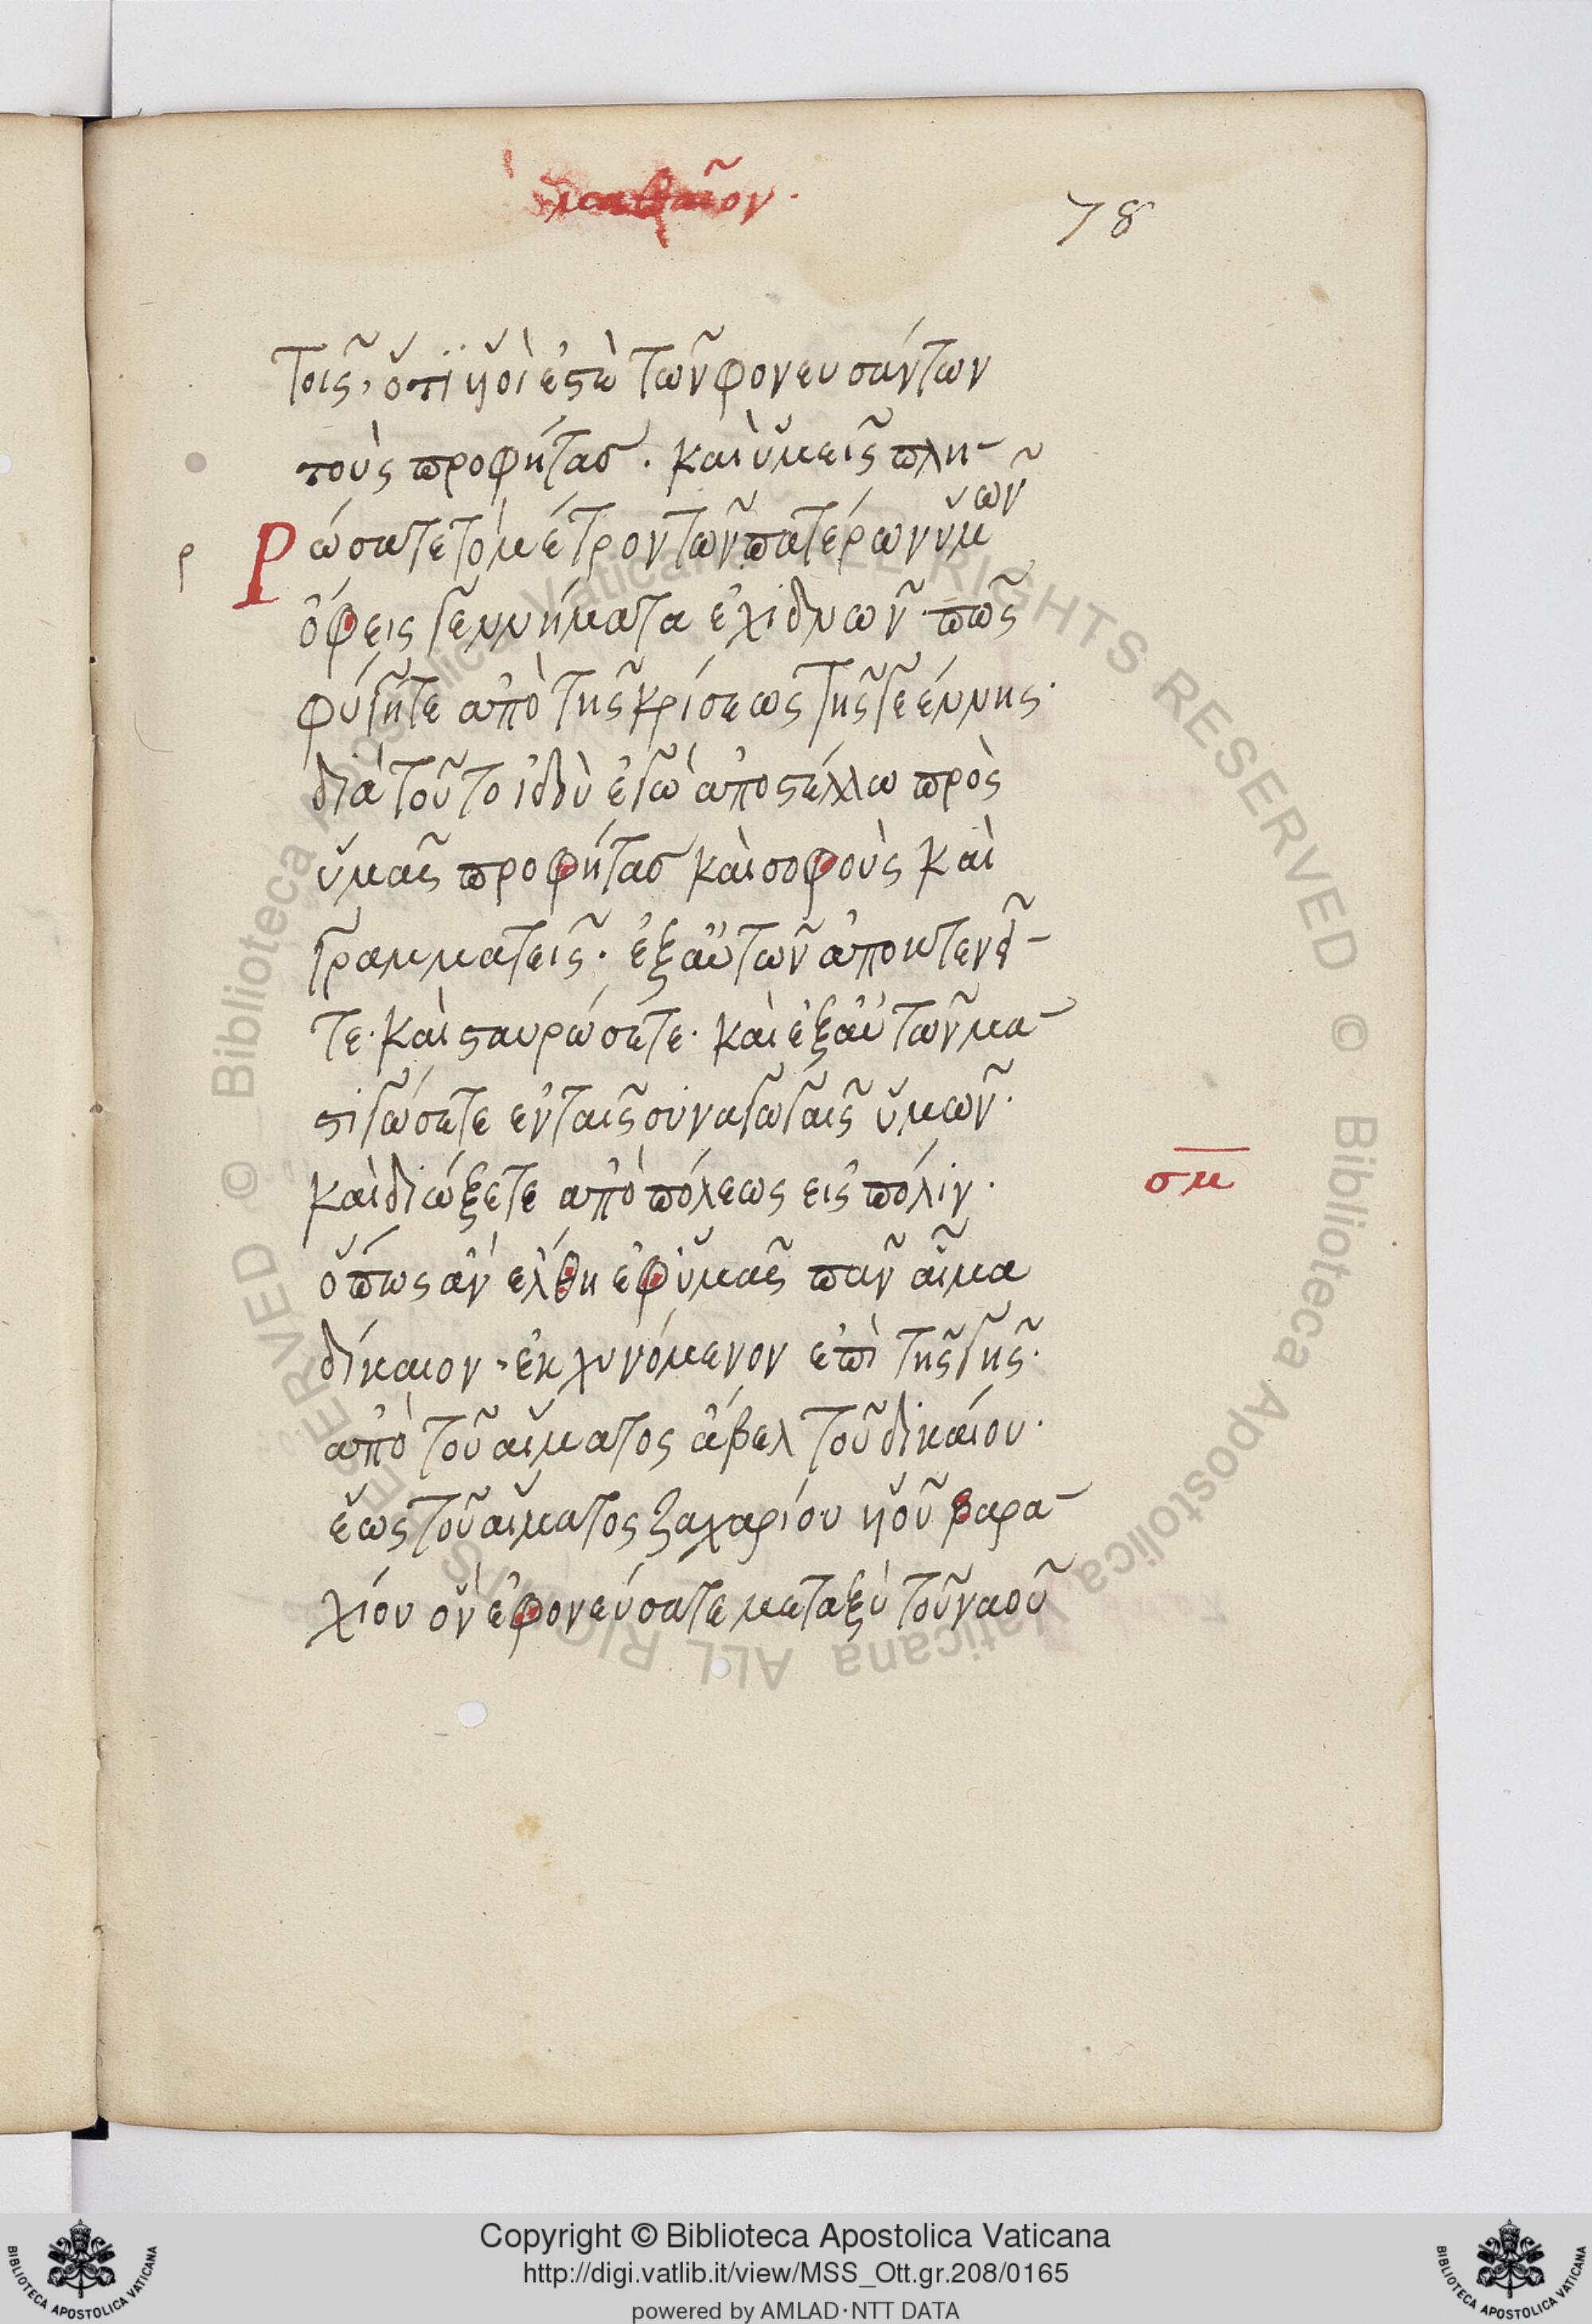 ματθαῖον·
78
τοῖς, ὅτι ϋἱοί ἐστὲ τῶν φονευσάντων
τοὺς προφήτασ. καὶ ὑμεῖς πλη-
ρ Ρώσατε τὸ μέτρον τῶν πατέρων ὑμῶν
ὄφεις γεννήματα ἐχιδνῶν πῶς
φύγητε ἀπὸ τῆς κρίσεως τῆς γεέννης·
διὰ τοῦτο ἰδοὺ ἐγὼ ἀποστέλλω πρὸς
ὑμᾶς προφήτασ καὶ σοφοὺς καὶ
γραμματεῖς· ἐξ αὐτῶν ἀποκτενεῖ-
τε· καὶ σταυρώσετε· καὶ ἐξ αὐτῶν μα-
στιγώσετε ἐν ταῖς συναγωγαῖς ὑμῶν·
καὶ διώξετε ἀπὸ πόλεως εἰς πόλιν·
σμ
ὅπως ἂν ἔλθη ἐφ ὑμᾶς πᾶν αἷμα
δίκαιον· ἐκχυνόμενον ἐπὶ τῆς γῆς·
ἀπὸ τοῦ αἵματος ἄβελ τοῦ δικαίου·
ἕως τοῦ αἵματος ζαχαρίου ὑοῦ βαρα-
χίου ὃν ἐφονεύσατε μεταξὺ τοῦ ναοῦ
Biblioteca Apostolica Vaticana ALL RIGHTS RESERVED © Biblioteca Apostolica Vaticana ALL RIGHTS RESERVED ©
Copyright © Biblioteca Apostolica Vaticana
http://digi.vatlib.it/view/MSS_Ott.gr.208/0165
powered by AMLAD·NTT DATA
BIBLIOTECA APOSTOLICA VATICANA
BIBLIOTECA APOSTOLICA VATICANA